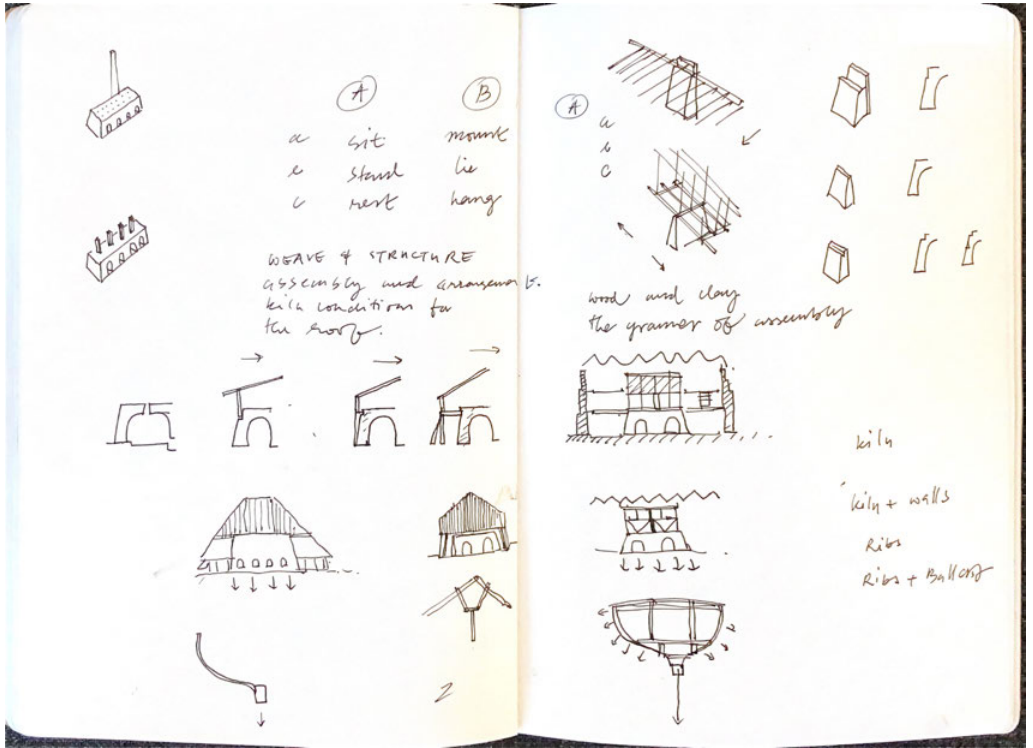 A B
a sit mount
b stand lie
c rest hang
WEAVE & STRUCTURE
assembly and arrangement.
kiln conditions for
the roof.
2
A
a
b
c
wood and clay
the gramer of assembly
kiln
kiln + walls
Ribs
Ribs + Ballast